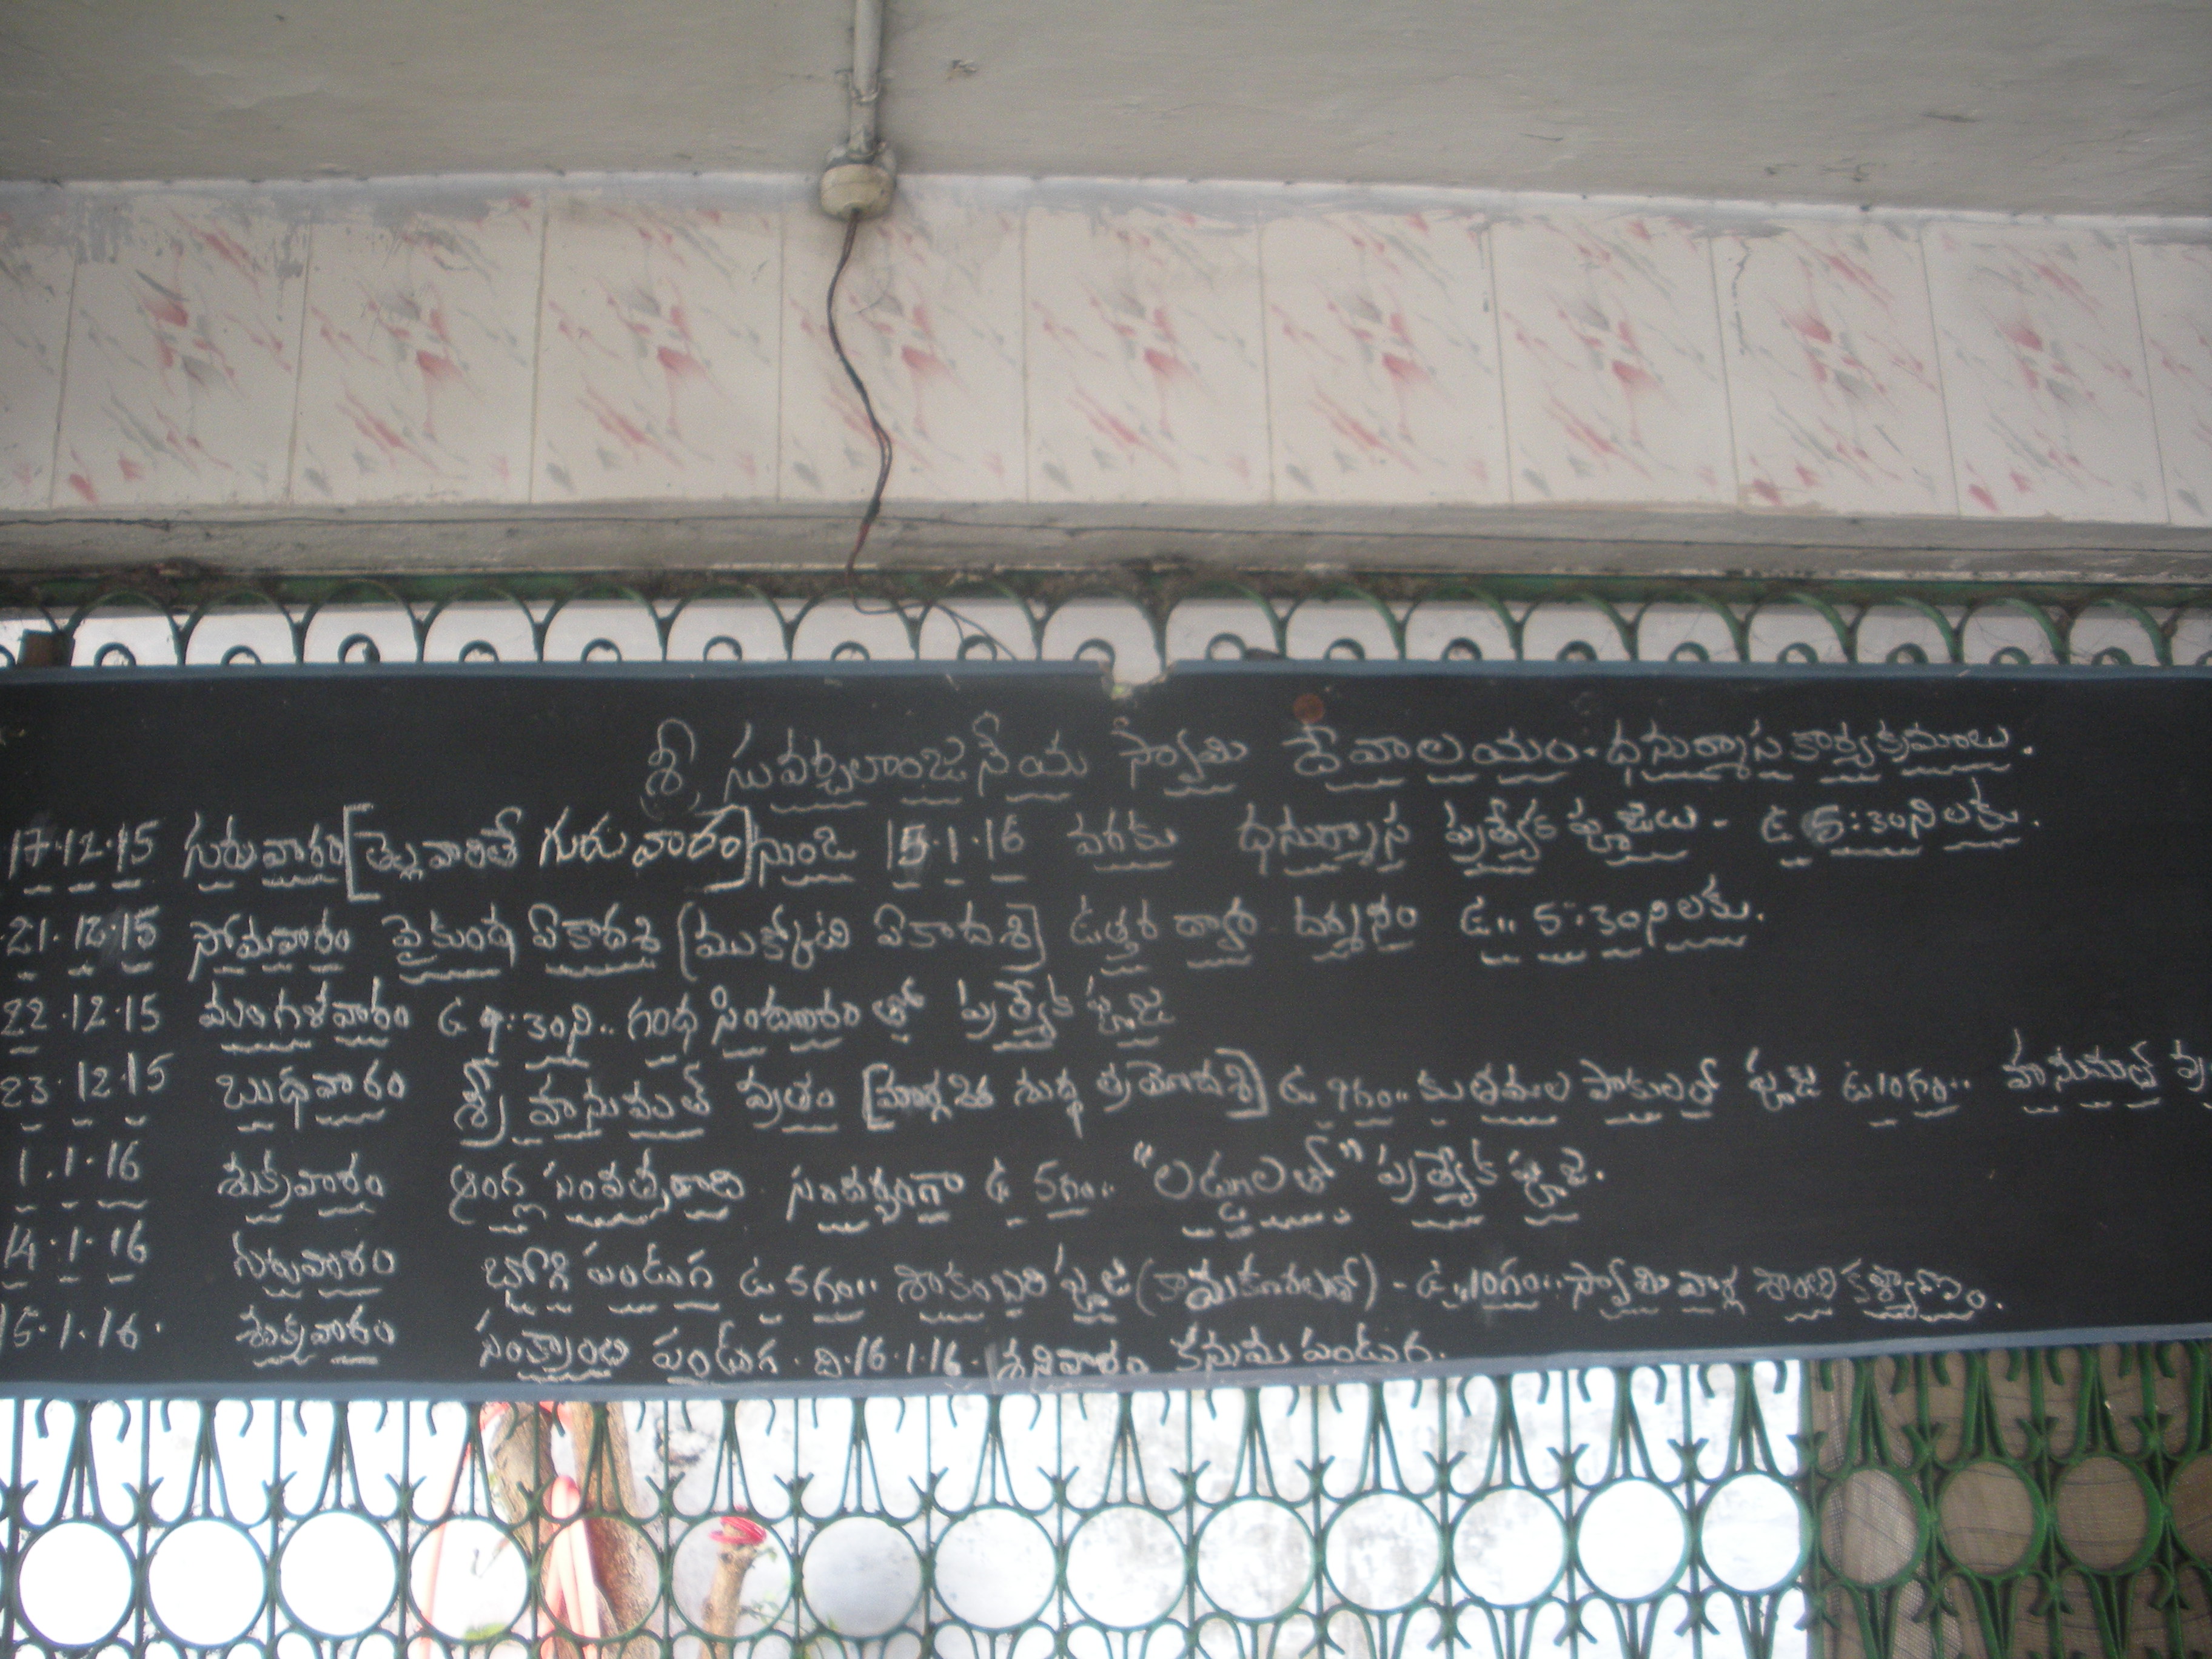 శ్రీ సువర్చలాంజనేయ స్వామి దేవాలయం - ధనుర్మాస కార్యక్రమాలు.
17.12.15 గురువారం [తెల్లవారితే గురువారం] నుండి 15.1.16 వరకు ధనుర్మాస ప్రత్యేక పూజలు - ఉ 5:30ని లకు.
21.12.15 సోమవారం వైకుంఠ ఏకాదశి (ముక్కోటి ఏకాదశి) ఉత్తర ద్వార దర్శనం ఉ.. 5:30ని లకు.
22.12.15 మంగళవారం ఉ 9:30ని.. గంధ సింధూరం తో ప్రత్యేక పూజ
23.12.15 బుధవారం శ్రీ హనుమత్ వ్రతం [మార్గశిర శుద్ధ త్రయోదశి] ఉ 9గం.. పూజ ఉ 10గం.. హనుమత్
1.1.16 శుక్రవారం ఆంగ్ల సంవత్సరాది సందర్భంగా ఉ 5గం.. "లడ్డూలతో" ప్రత్యేక పూజ.
14.1.16 గురువారం భోగి పండుగ ఉ 5గం.. శాకంబరి పూజ (కాయకూరలతో) - ఉ..10గం.. స్వామి వార్ల శాంతి కళ్యాణం.
15.1.16. శుక్రవారం సంక్రాంతి పండుగ. ది.16.1.16. శనివారం కనుమ పండుగ.